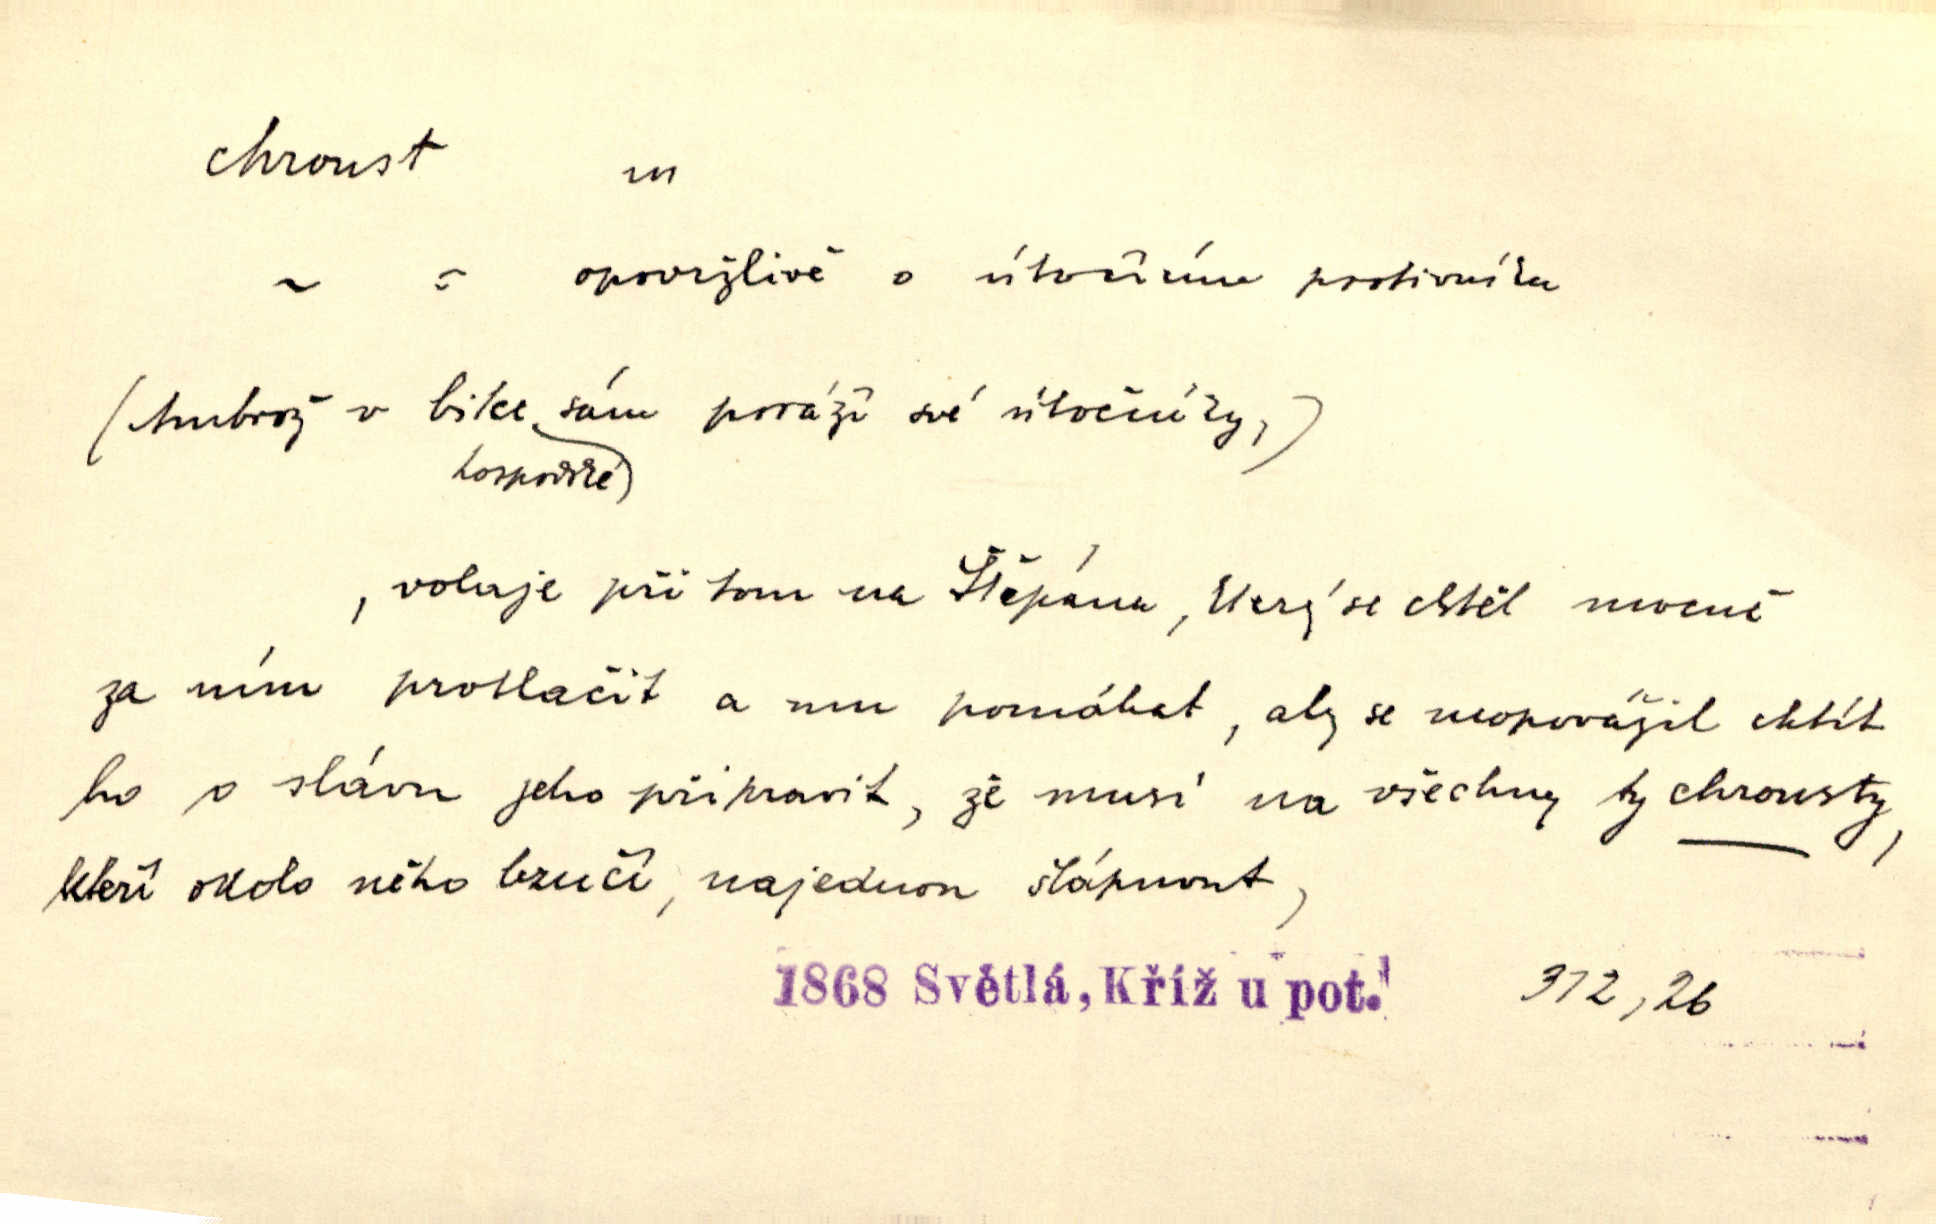 chroust m
~ = opovržlivě o útočícím protivníku
(Ambrož v bitce sám poráží své útočníky,)
hospodské)
, volaje při tom na Štěpána, který se chtěl mocně
za ním protlačit a mu pomáhat, aby se neopovážil chtít
ho o slávu jeho připravit, že musí na všechny ty chrousty,
kteří okolo něho bzučí, najednou šlápnout,
1868 Světlá, Kříž u pot.
312, 26